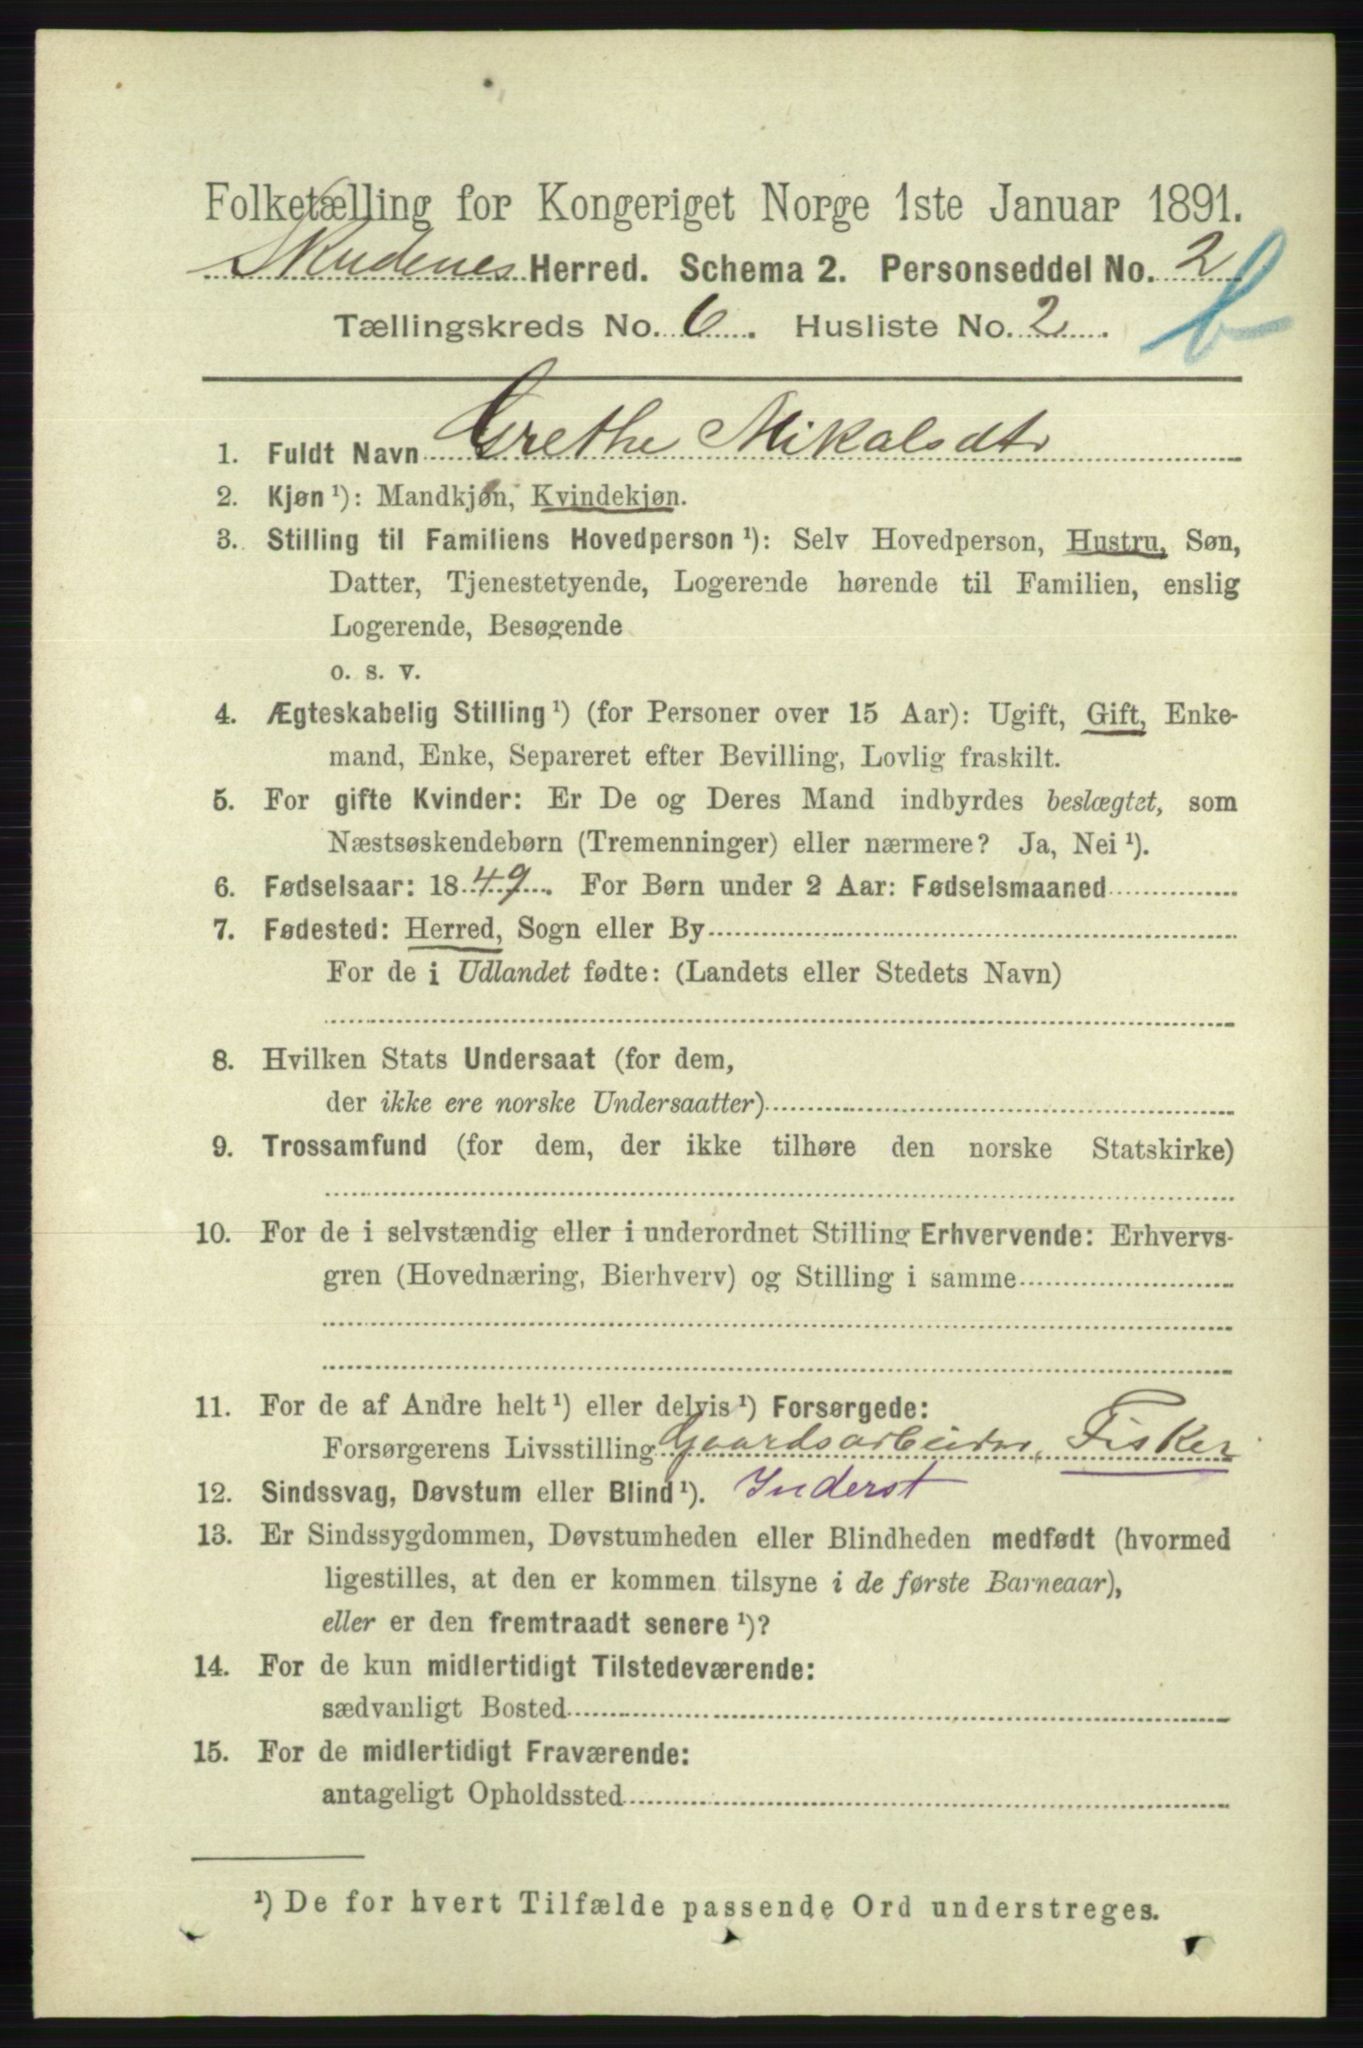 Folketælling for Kongeriget Norge 1ste Januar 1891.
Skudenes Herred. Schema 2. Personseddel No. 2
Tællingskreds No. 6. Husliste No. 2.
b
1. Fuldt Navn Grethe Mikalsdtr
2. Kjøn ¹): Mandkjøn, Kvindekjøn.
3. Stilling til Familiens Hovedperson ¹): Selv Hovedperson, Hustru, Søn,
Datter, Tjenestetyende, Logerende hørende til Familien, enslig
Logerende, Besøgende
o. s. v.
4. Ægteskabelig Stilling ¹) (for Personer over 15 Aar): Ugift, Gift, Enke-
mand, Enke, Separeret efter Bevilling, Lovlig fraskilt.
5. For gifte Kvinder: Er De og Deres Mand indbyrdes beslægtet, som
Næstsøskendebørn (Tremenninger) eller nærmere? Ja, Nei ¹).
6. Fødselsaar: 1849. For Børn under 2 Aar: Fødselsmaaned
7. Fødested: Herred, Sogn eller By
For de i Udlandet fødte: (Landets eller Stedets Navn)
8. Hvilken Stats Undersaat (for dem,
der ikke ere norske Undersaatter)
9. Trossamfund (for dem, der ikke tilhøre den norske Statskirke)
10. For de i selvstændig eller i underordnet Stilling Erhvervende: Erhvervs-
gren (Hovednæring, Bierhverv) og Stilling i samme
11. For de af Andre helt ¹) eller delvis ¹) Forsørgede:
Forsørgerens Livsstilling Gaardsarbeider, Fisker
12. Sindssvag, Døvstum eller Blind ¹). Inderst
13. Er Sindssygdommen, Døvstumheden eller Blindheden medfødt (hvormed
ligestilles, at den er kommen tilsyne i de første Barneaar),
eller er den fremtraadt senere ¹)?
14. For de kun midlertidigt Tilstedeværende:
sædvanligt Bosted
15. For de midlertidigt Fraværende:
antageligt Opholdssted
¹) De for hvert Tilfælde passende Ord understreges.